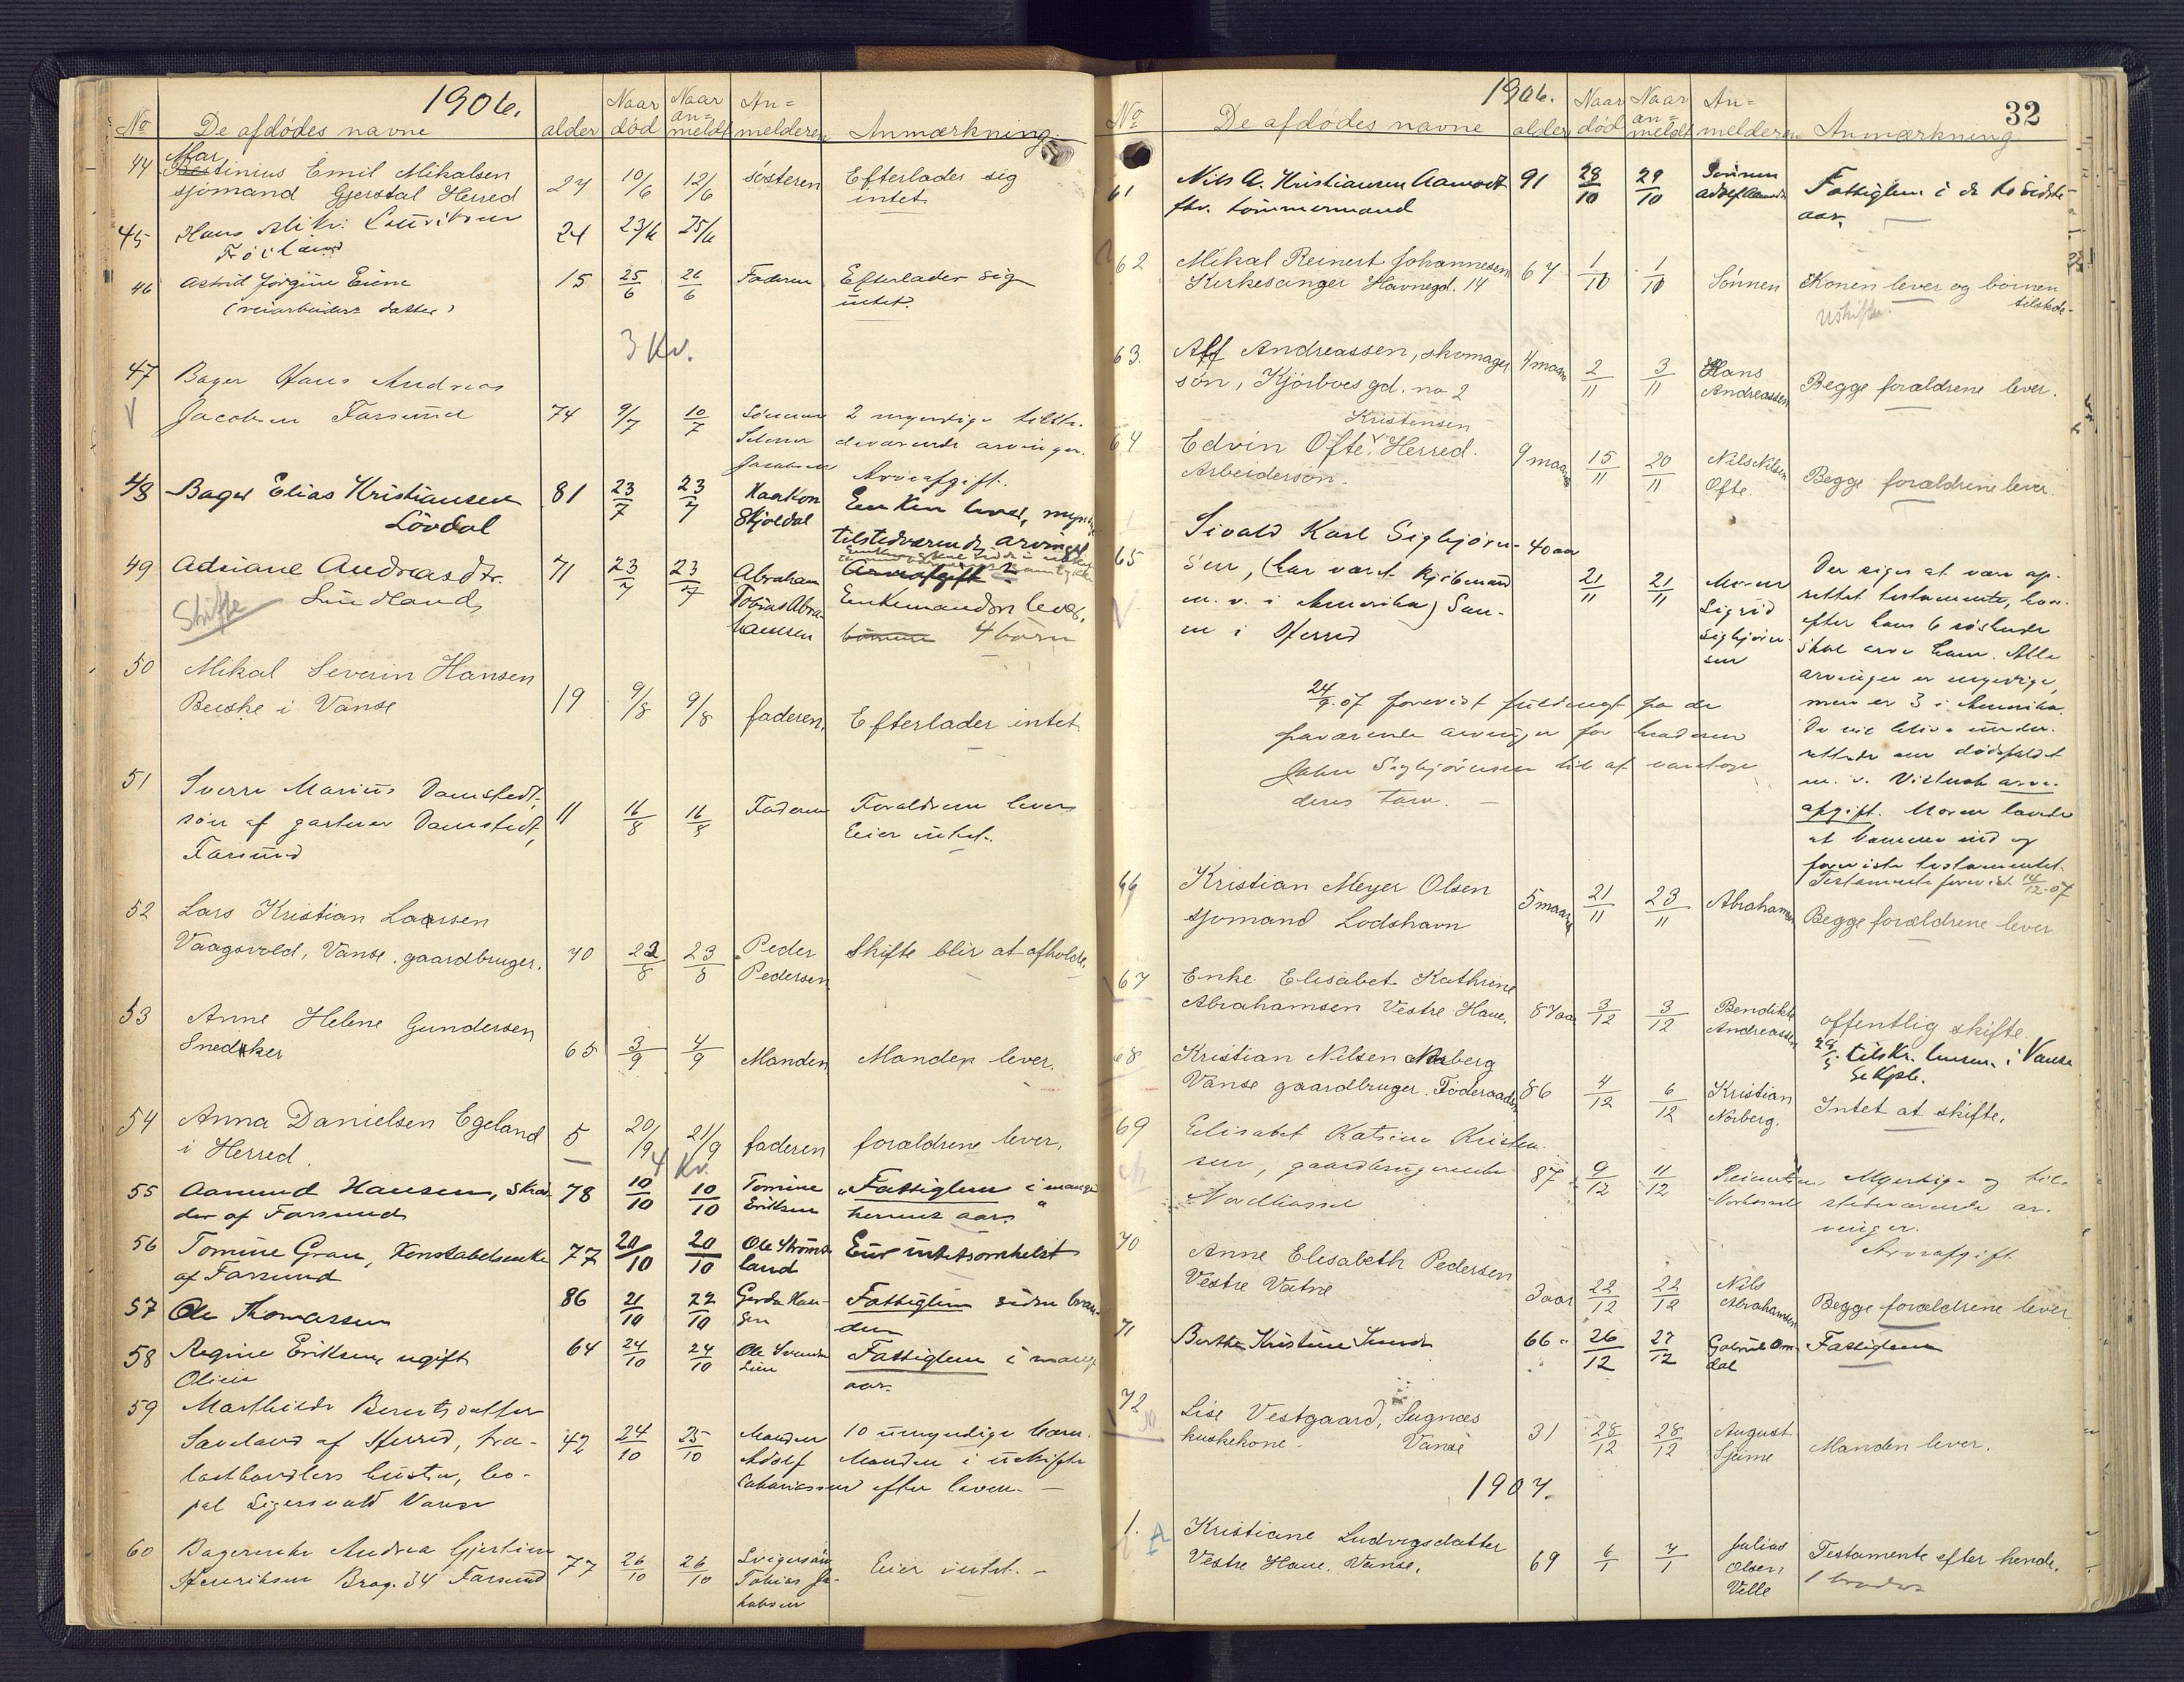 1906.
No De afdödes navne alder Naar död Naar an=meldt An=melderen Anmærkning
44 Mar
tinius Emil Mikalsen
sjömand Gjerstal Herred 27 10/6 12/6 søsteren Efterlader sig
intet
45 Hans
24 23/6 25/6
46 Astrid Jörgine
datter) 15 25/6 26/6 Faderen Efterlader sig
intet.
3 Kv.
47 Bager Hans Andreas
Jacobsen Farsund 74 9/7 10/7 Sönnen 2 myndige tilste-
deværende arvinger.
Jacobsen Arveafgift.
48 Bager Elias Kristiansen 81 23/7 23/7 Haakon Enken lever,
Lövdal Skjoldal tilstedværende arvinger
Arveafgift
49 Adriane Andreasdtr. 71 23/7 23/7 Abraham
Skifte Lindland Tobias Abra- Enkemanden lever,
hamsen börnene 4 börn
50 Mikal Severin Hansen
Beiske i Vanse 19 9/8 9/8 faderen, Efterlader intet
51 Sverre Marius Damstedt,
sön af gartner Damstedt, 11 16/8 16/8 Faderen Foraldrene lever
Farsund Eier intet.
52 Lars Kristian Laarsen
Vaagsvold, Vanse, gaardbruger. 70 22/8 23/8 Peder Skifte blir at afholde.
Pedersen
53 Anne Helene Gundersen
Snedker 65 3/9 4/9 Manden Manden lever.
54 Anna Danielsen Egeland 5 20/9 21/9 faderen forældrene lever.
i Herred.
4 Kv.
55 Aanund Hansen, 78 10/10 10/10 Tomine "Fattiglem i mange
der af Farsund Eriksen aar"
56 Tomine Gran, Konstabelenke 77 20/10 20/10 Ole Strøms- Eier intetsomhelst
af Farsund land
57 Ole Thomassen 86 21/10 22/10 Gerda Han- Fattiglem siden bran-
sen den
58 Regine Eriksen, ugift 64 24/10 24/10 Ole Fattiglem i mange
aar.
59 Berentsdatter
Saveland af Herred, tra- 42 24/10 25/10 Manden 10 umyndige barn.
lasthandlers hustru, bo- Adolf Manden i uskifte
pel Vanse efter loven. —
60 Bagerenke Andrea Gjertine
Henriksen Brog. 34 Farsund 77 26/10 26/10 Svigersön Eier intet. —
Tobias Ja-
kobsen
1906. 32
No De afdödes navne alder Naar död Naar an=meldt An=melderen Anmærkning
61 Nils A. Kristiansen Aamodt 91 28/10 29/10 Sönnen Fattiglem i de to sidste
fhv. tömmermand Adolf Aamodt aar.
62 Mikal Reinert Johannesen 67 1/10 1/10 Sønnen Konen lever og börnen
Kirkesanger Havnegd. 14 tilstede-
Uskifte.
63. Alf Andreassen, skomager 4 maan 2/11 3/11 Hans Begge forældrene lever.
sön, Kjörboes gd. no 2 Andreassen
Kristensen
64 Edvin Ofte. Herred. 9 maan 15/11 20/11 Nils Nilsen Begge forældrene lever.
Arbeidersön. Ofte.
65 Sivald Karl Sigbjörn- 40 aar
sen, (har været kjöbmand 21/11 21/11 Moren Der siges at være op-
m. v. i Amerika) Sigrid rettet testamente, hvor-
i Herred Sigbjörn- efter hans 6 söskende
sen skal arve ham. Alle
arvinger er myndige,
men er 3 i Amerika.
De vil blive under-
rettede om dödsfaldet
m. v. Vistnok arve-
afgift. Moren lovede
at komme ind og
forevise testamentet.
Testamente forevist 14/12-07
24/9.07 forevist fuldmagt fra de
fraværende arvinger for broderen
John Sigbjörnsen til at varetage
deres tarv. —
66 Kristian Meyer Olsen 5 maan 21/11 23/11 Abrahamsen Begge forældrene lever
sjömand Lodshavn
67 Enke Elisabet Kathrine
Abrahamsen Vestre Haue. 87 aar 3/12 3/12 Bendikte offentlig skifte.
Andreassen
i Vanse
68 Kristian Nilsen Norberg
Vanse gaardbruger. Föderaadsm 86 4/12 6/12 Kristian Intet at skifte.
Norberg.
69 Elisabet Katrine Kristen-
sen, gaardbrugerenke 87 9/12 11/12 Myndige og til-
Nordhassel stedeværende ar-
vinger.
Arveafgift
70 Anne Elisabeth Pedersen
Vestre Vatne 3 aar 22/12 22/12 Nils Begge forældrene lever
Abrahamsen
71 Berthe Kristine 66 26/12 27/12 Gabriel Om- Fattiglem
dal
72 Lise Vestgaard, Sugnæs
huskekone. Vanse 31 28/12 28/12 August Manden lever.
1907.
1. Kristiane Ludvigsdatter
Vestre Haue, Vanse. 69 6/1 7/1 Julius Testamente efter hende.
Olsen
Velle